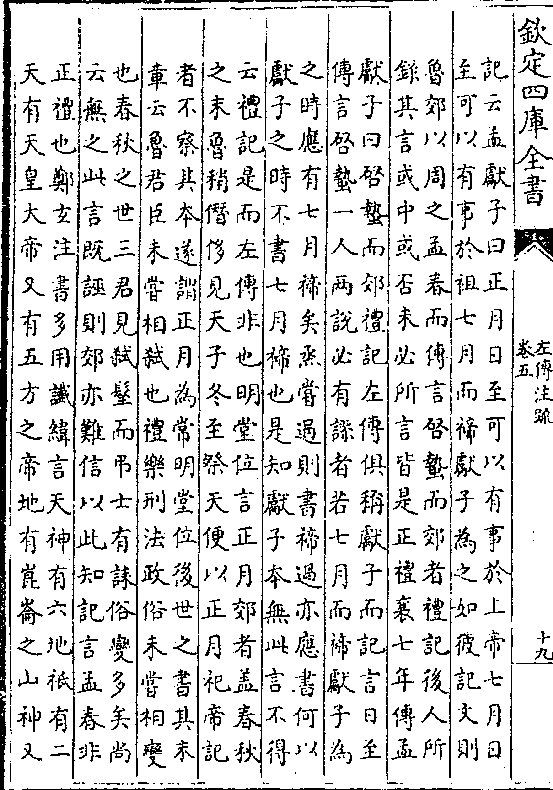 欽定四庫全書
左傳注疏
卷五
十九
記云孟獻子曰正月日至可以有事於上帝七月日
至可以有事於祖七月而禘獻子為之如彼記文則
魯郊以周之孟春而傳言啓蟄而郊者禮記後人所
錄其言或中或否未必所言皆是正禮襄七年傳孟
獻子曰啓蟄而郊禮記左傳俱稱獻子而記言日至
傳言啓蟄一人兩說必有謬者若七月而禘獻子為
之時應有七月禘矣烝嘗過則書禘過亦應書何以
獻子之時不書七月禘也是知獻子本無此言不得
云禮記是而左傳非也明堂位言正月郊者盖春秋
之末魯稍僭侈見天子冬至祭天便以正月祀帝記
者不察其本遂謂正月為常明堂位後世之書其末
章云魯君臣未嘗相弑也禮樂刑法政俗未嘗相變
也春秋之世三君見弑髽而弔士有誄俗變多矣尚
云無之此言既誣則郊亦難信以此知記言孟春非
正禮也鄭玄注書多用讖緯言天神有六地祇有二
天有天皇大帝又有五方之帝地有崑崙之山神又